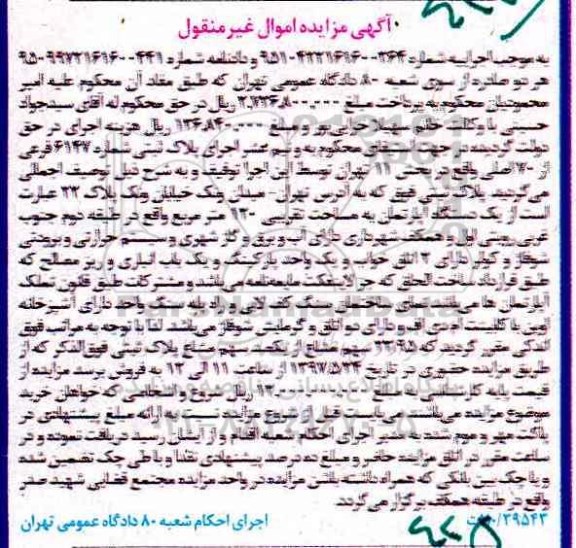 آگهی مزایده اموال غیر منقول
به موجب اجراییه شماره ۹۵۱۰۴۲۲۱۶۱۶۰۰۲۶۴ و دادنامه شماره ۹۵۰۹۹۷۲۱۶۱۶۰۰۴۴۱
هر دو صادره از سوی شعبه ۸۰ دادگاه عمومی تهران که طبق مفاد آن محکوم علیه امیر
محمودیان محکوم به پرداخت مبلغ ۲,۷۳۶,۸۰۰,۰۰۰ ریال در حق محکوم له آقای سیدجواد
حسینی با وکالت خانم سهیلا چرایی پور و مبلغ ۱۳۶,۸۴۰,۰۰۰ ریال هزینه اجرای در حق
دولت گردیده در جهت استیفای محکوم به و نیم عشر اجرای پلاک ثبتی شماره ۶۱۴۷ فرعی
از ۷۰ اصلی واقع در بخش ۱۱ تهران توسط این اجرا توقیف و به شرح ذیل توصیف اجمالی
می گردید. پلاک ثبتی فوق که به آدرس تهران - میدان ونک خیابان ونک پلاک ۲۲ عبارت
است از یک دستگاه آپارتمان به مساحت تقریبی ۱۲۰ متر مربع واقع در طبقه دوم جنوب
غربی روی اول و همکف شهرداری دارای آب و برق و گاز شهری و سیستم حرارتی و برودتی
شوفاژ و کولر دارای ۲ اتاق خواب و یک واحد پارکینگ و یک باب انباری و ریز مصالح که
طبق قرارداد ساخت الحق که جز لاینفک مبایعه نامه می باشد و مشترکات طبق قانون تملک
آپارتمان ها می باشد نمای ساختمان سنگ کف لابی و راه پله سنگ واحد دارای آشپزخانه
اوپن با کابینت ام دی اف و دارای دو اتاق و گرمایش شوفاژ می باشد. لذا با توجه به مراتب فوق
اندکی مقرر گردید که ۲۳.۹۵ سهم مشاع از یکصد سهم مشاع پلاک ثبتی فوق الذکر که از
طریق مزایده حضوری در تاریخ ۱۳۹۷/۵/۲۴ از ساعت ۱۱ الی ۱۲ به فروش برسد مزایده از
قیمت پایه کارشناسی به مبلغ ریال شروع و اشخاصی که خواهان خرید
موضوع مزایده می باشند می بایست قبل از شروع مزایده نسبت به ارائه مبلغ پیشنهادی در
پاکت مهر و موم شده به مدیر اجرای احکام شعبه اقدام و از ایشان رسید دریافت نموده و در
ساعت مقرر در اتاق مزایده حاضر و مبلغ ده درصد پیشنهادی نقدا و یا طی چک تضمین شده
و یا چک بین بانکی که همراه داشته باشن مزایده در واحد مزایده مجتمع قضایی شهید صدر
واقع در طبقه همکف برگزار می گردد.
۱۱۰/۳۹۵۴۳ت اجرای احکام شعبه ۸۰ دادگاه عمومی تهران